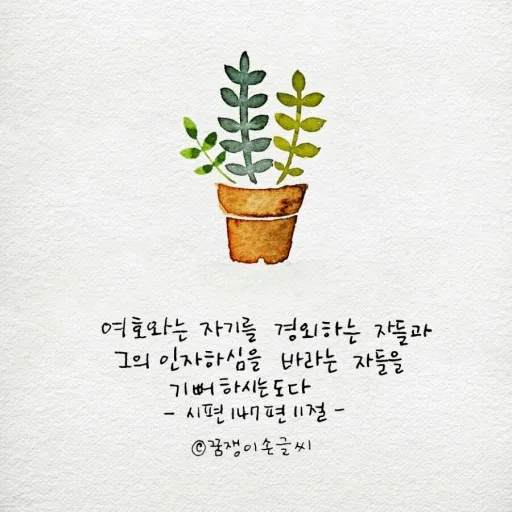 여호와는 자기를 경외하는 자들과
그의 인자하심을 바라는 자들을
기뻐하시는도다
- 시편 147편 11절 -
©꿈쟁이손글씨